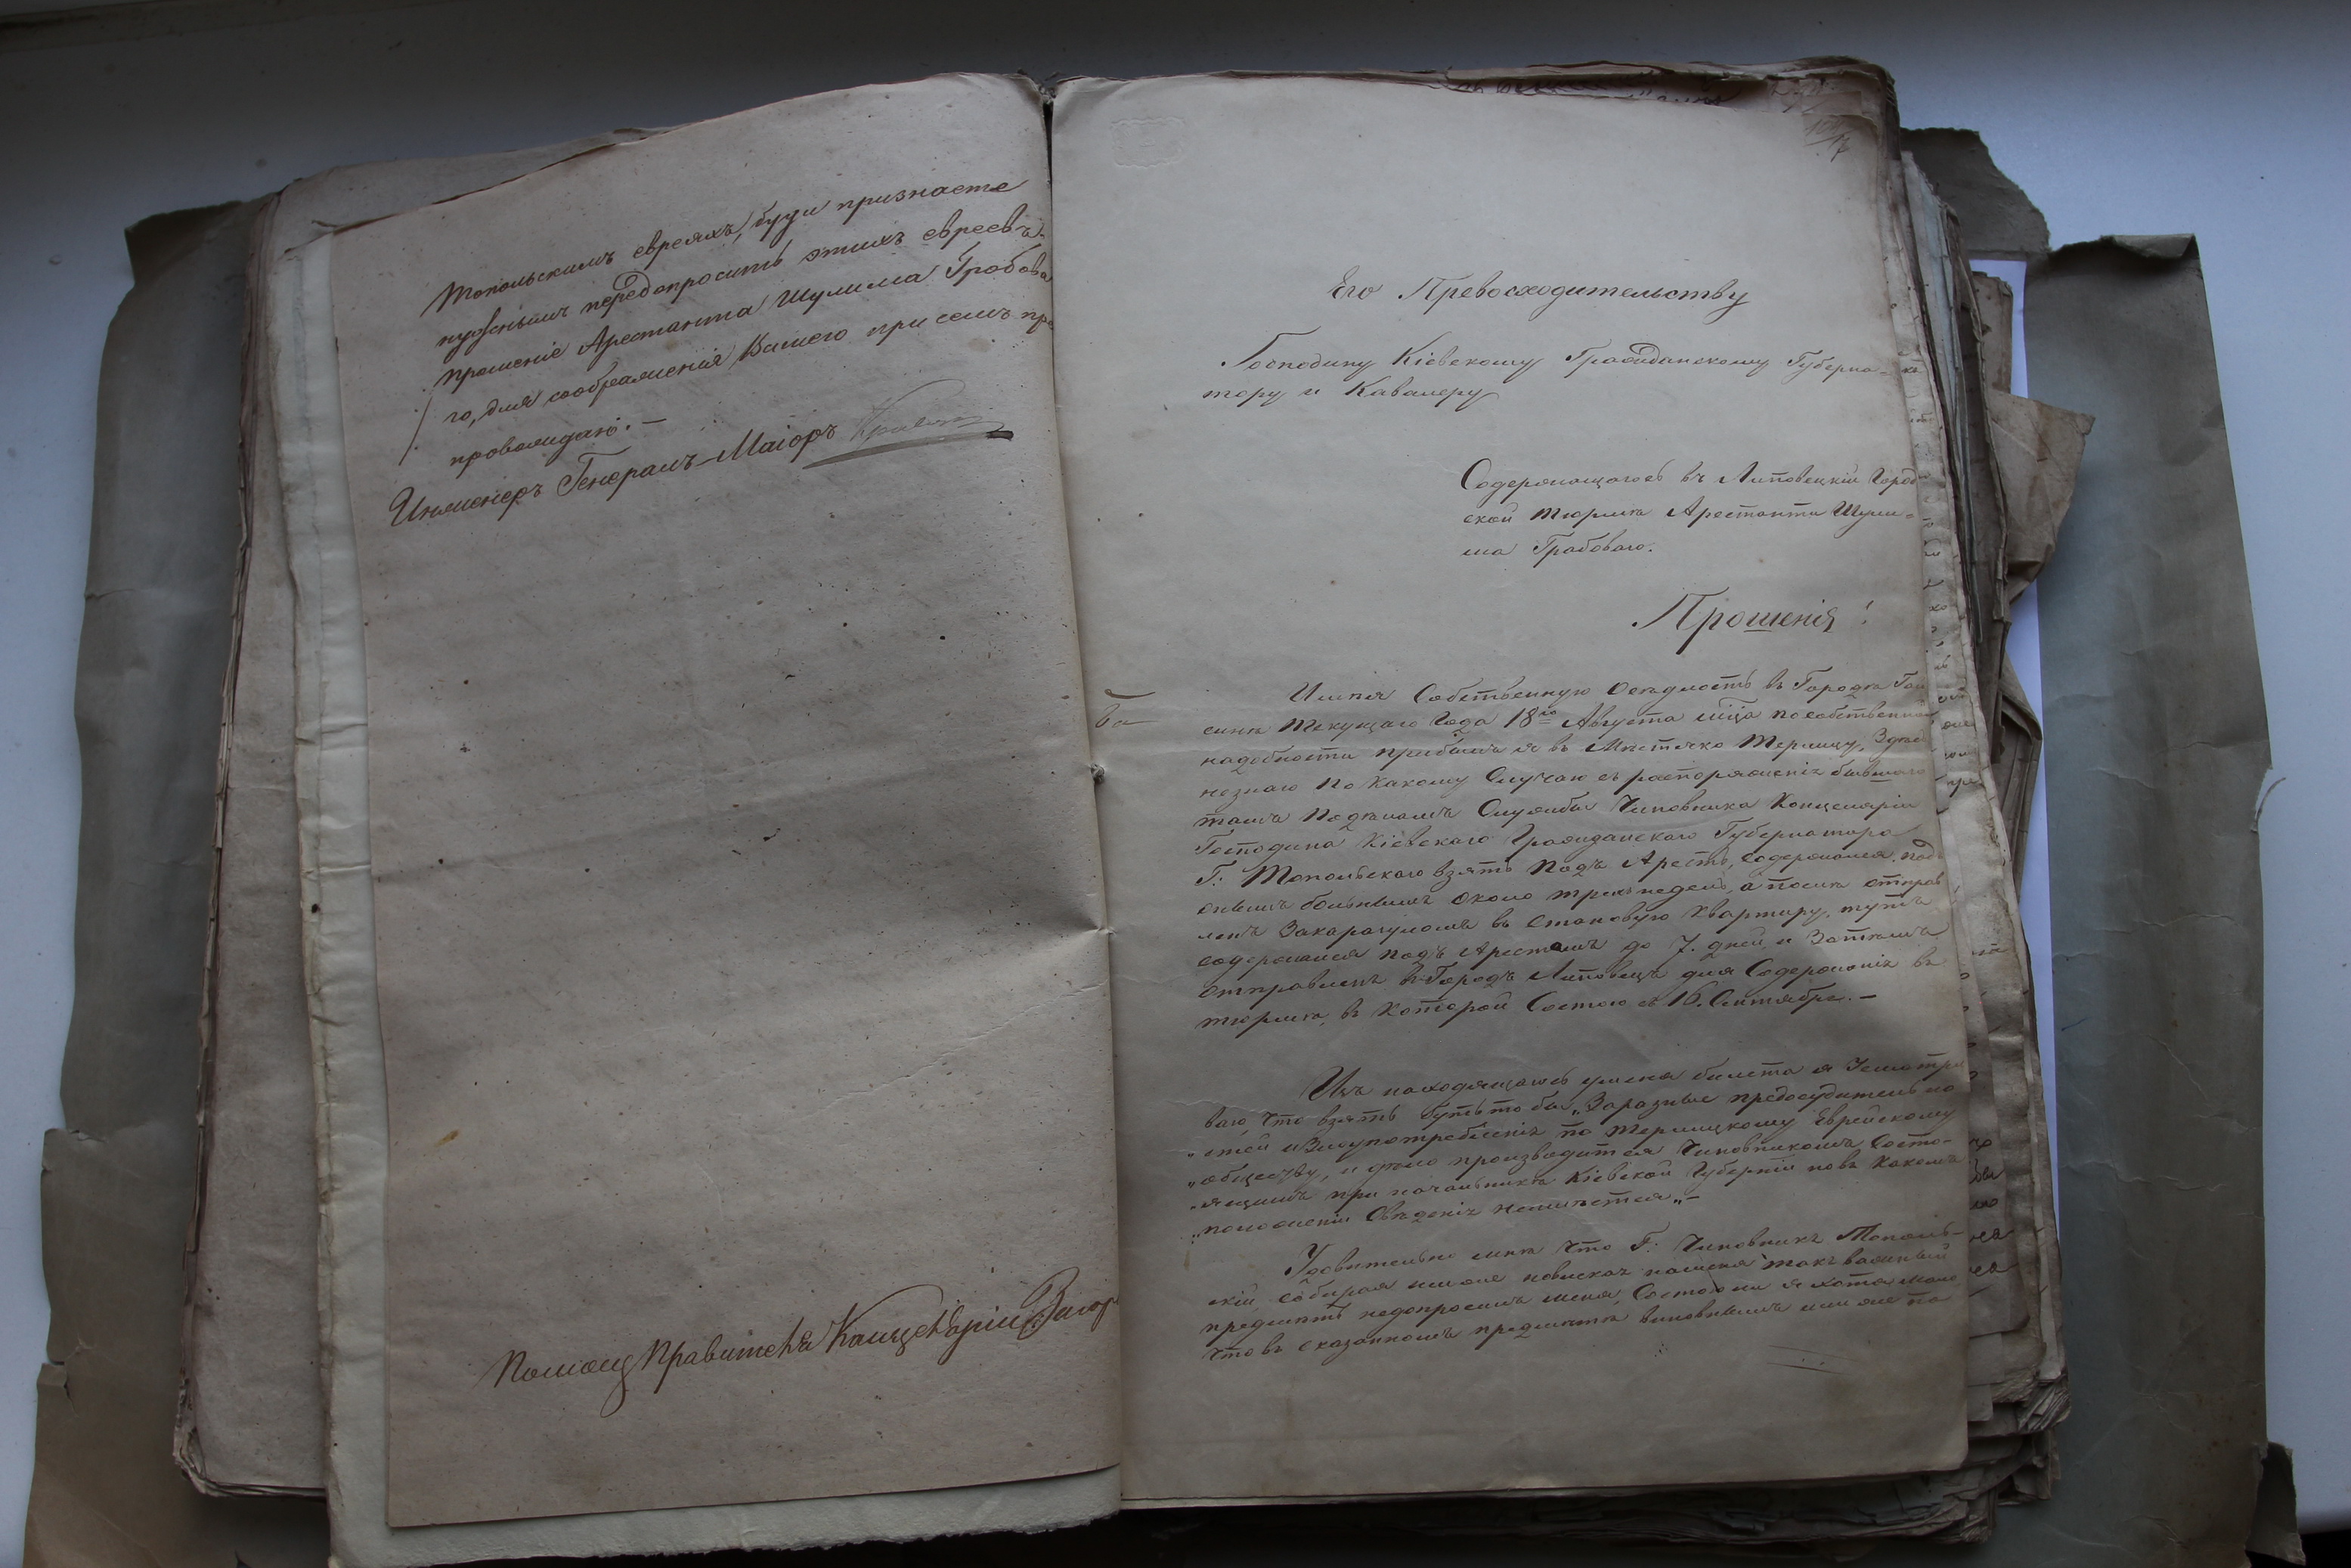 Топольскимъ евреяхъ, буди признаете
нужнымъ передопросить этихъ евреевъ
прошеніе Арестанта Шулима Гробова
го, для соображенія Вашего при семъ пре
провождаю. —
Инженеръ Генералъ-Маіоръ
Помощ Правителя Канцеляріи
Его Превосходительству
Господину Кіевскому Гражданскому Губерна=
тору и Кавалеру
Содержащагось въ Липовецкій Город
ской тюрмѣ Арестанта Шули=
ма Грабоваго.
Прошенія!
Имѣя Собственную осѣдлость въ Городѣ Гай
синѣ текущаго года 18го Августа мца пособственной
надобности прибылъ я въ Мѣстечко Терлицу, Здѣсь
незнаю по какому Случаю съ распоряженіе бывшаго
тамъ подѣламъ Службы Чиновника Канцеляріи
Господина Кіевскаго Гражданскаго Губернатора
Г: Топольскаго взятъ подъ Арестъ, содержался под
онымъ большимъ около трехъ недель, а послѣ отправ
ленъ Закарауломъ въ становую квартиру, тутъ
содержался подъ Арестамъ до 7. дней, и Затѣмъ
отправленъ въ Городъ Липовецъ для Содержаніе въ
тюрмѣ, въ которой Состою съ 16. Сентября. —
Изъ находящагось уменя билета я Усматри
ваю, что взятъ будьто бы „Заразные предосудительно
„стей и Злоупотребленіе по Терлицкому Еврейскому
„обществу, и дѣло производится Чиновникомъ Состо-
„ящимъ при начальникѣ Кіевской Губерніи новъ какомъ
„положеніи Свѣденіе неимѣется„ —
Удивительно мнѣ что Г: Чиновникъ Тополь-
скій, собирая или же повискаъ наменя такъ важный
предметъ недопросилъ меня, Состою ли я хотя мало
что въ сказанномъ предметѣ виновнымъ или же по